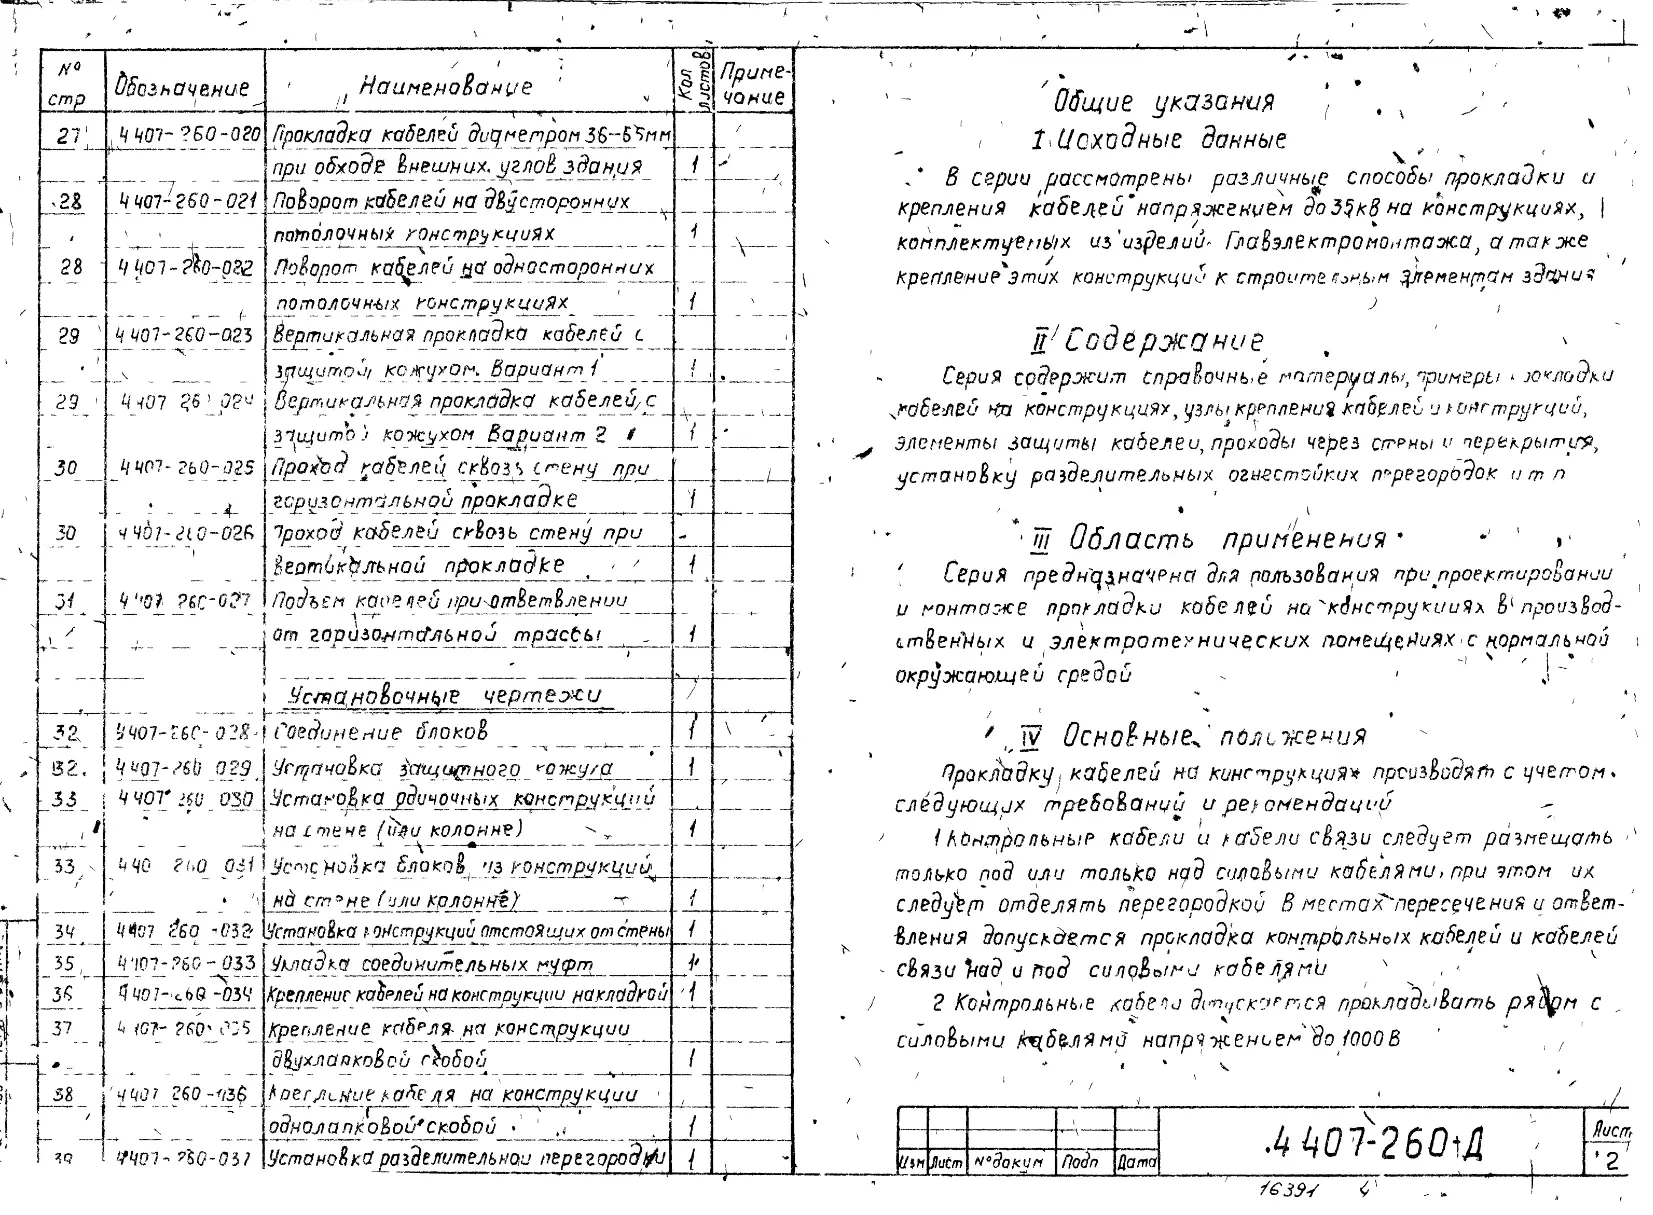 № стр Обозначение Наименование Кол листов Приме-чание
27 4407-260-020 Прокладка кабелей диаметром 36-65мм
при обходе внешних углов здания 1
28 4407-260-021 Поворот кабелей на двусторонних
потолочных конструкциях 1
28 4407-260-022 Поворот кабелей на односторонних
потолочных конструкциях 1
29 4407-260-023 Вертикальная прокладка кабелей с
защитой кожухом. Вариант 1 1
29 4407 26 024 Вертикальная прокладка кабелей с
защитой кожухом Вариант 2 1
30 4407-260-025 Проход кабелей сквозь стену при
горизонтальной прокладке 1
30 4407-260-026 Проход кабелей сквозь стену при
вертикальной прокладке 1
31 4407 260-027 Подъем кабелей при ответвлении
от горизонтальной трассы 1
Установочные чертежи
32 4407-260-028 Соединение блоков 1
32. 4407-260 029 Установка защитного кожуха 1
33 4407 260 030 Установка одиночных конструкций
на стене (или колонне) 1
33 440 260 031 Установка блоков из конструкций
на стене (или колонне) 1
34 4407 260-032 Установка конструкций отстоящих от стены 1
35 4407-260-033 Укладка соединительных муфт 1
36 4407-260-034 Крепление кабелей на конструкции накладкой 1
37 4407-260-035 Крепление кабеля на конструкции
двухлапковой скобой 1
38 4407 260-036 Крепление кабеля на конструкции
однолапковой скобой 1
39 4407-260-037 Установка разделительной перегородки 1
Общие указания
I. Исходные данные
В серии рассмотрены различные способы прокладки и
крепления кабелей напряжением до 35кВ на конструкциях,
комплектуемых из изделий Главэлектромонтажа, а также
крепление этих конструкций к строительным элементам здания
II Содержание
Серия содержит справочные материалы, примеры прокладки
кабелей на конструкциях, узлы крепления кабелей и конструкций,
элементы защиты кабелей, проходы через стены и перекрытия,
установку разделительных огнестойких перегородок и т п
III Область применения
Серия предназначена для пользования при проектировании
и монтаже прокладки кабелей на конструкциях в производ-
ственных и электротехнических помещениях с нормальной
окружающей средой
IV Основные положения
Прокладку кабелей на конструкциях производят с учетом
следующих требований и рекомендаций
1 Контрольные кабели и кабели связи следует размещать
только под или только над силовыми кабелями, при этом их
следует отделять перегородкой В местах пересечения и ответ-
вления допускается прокладка контрольных кабелей и кабелей
связи над и под силовыми кабелями
2 Контрольные кабели допускается прокладывать рядом с
силовыми кабелями напряжением до 1000 В
Изм Лист №докум Подп Дата
4407-260-Д
Лист 2
16391 4